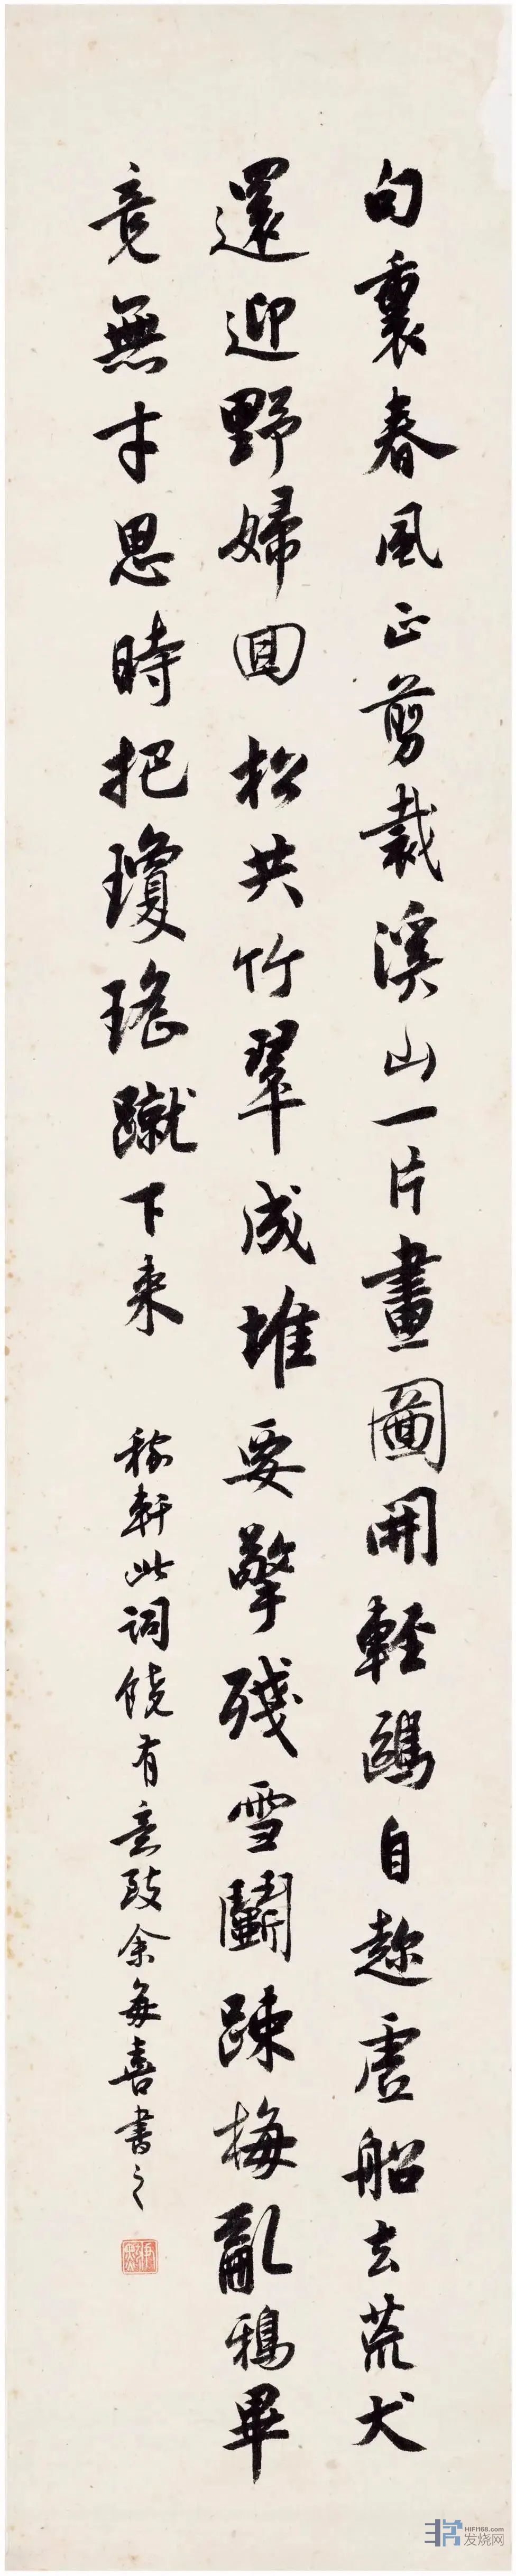 句裏春風正剪裁溪山一片畫圖開輕鷗自趂虛船去荒犬
還迎野婦回松共竹翠成堆要擎殘雪鬭踈梅亂鴉畢
竟無才思時把瓊瑤蹴下來
稼軒此詞饒有意致余每喜書之
HIFI168.com
发烧网